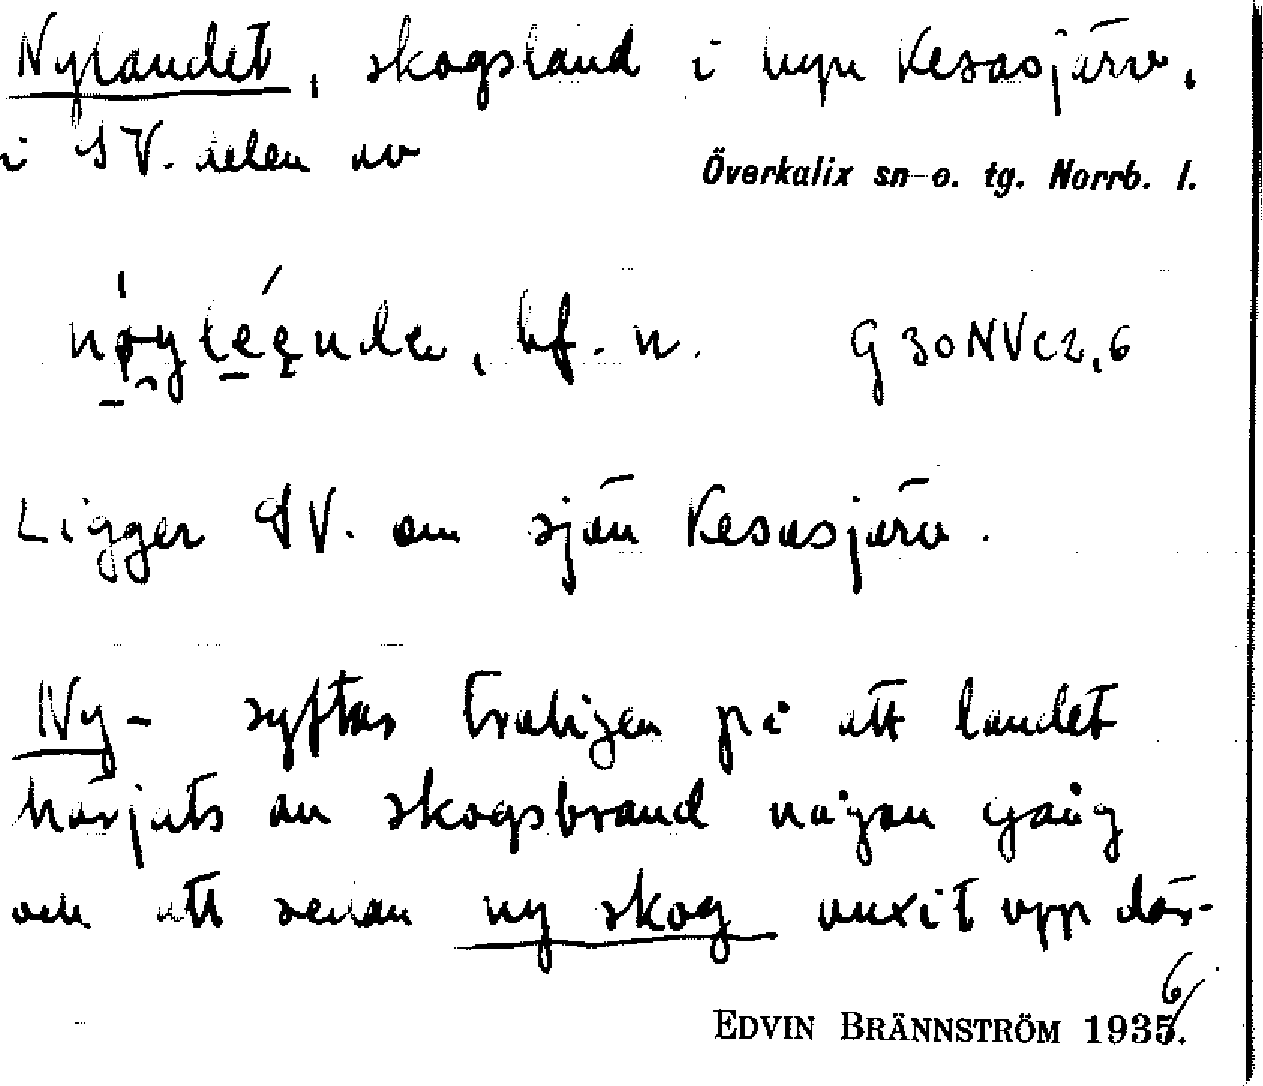 Nylandet, skogsland i byn Kesasjärv,
i SV. delen av Överkalix sn o. tg. Norrb. l.
bf. n. G 30 NV c2,6
Ligger SV. om sjön Kesasjärv.
Ny- syftar troligen på att landet
härjats av skogsbrand någon gång
och att sedan ny skog vuxit upp där-
EDVIN BRÄNNSTRÖM 1936.